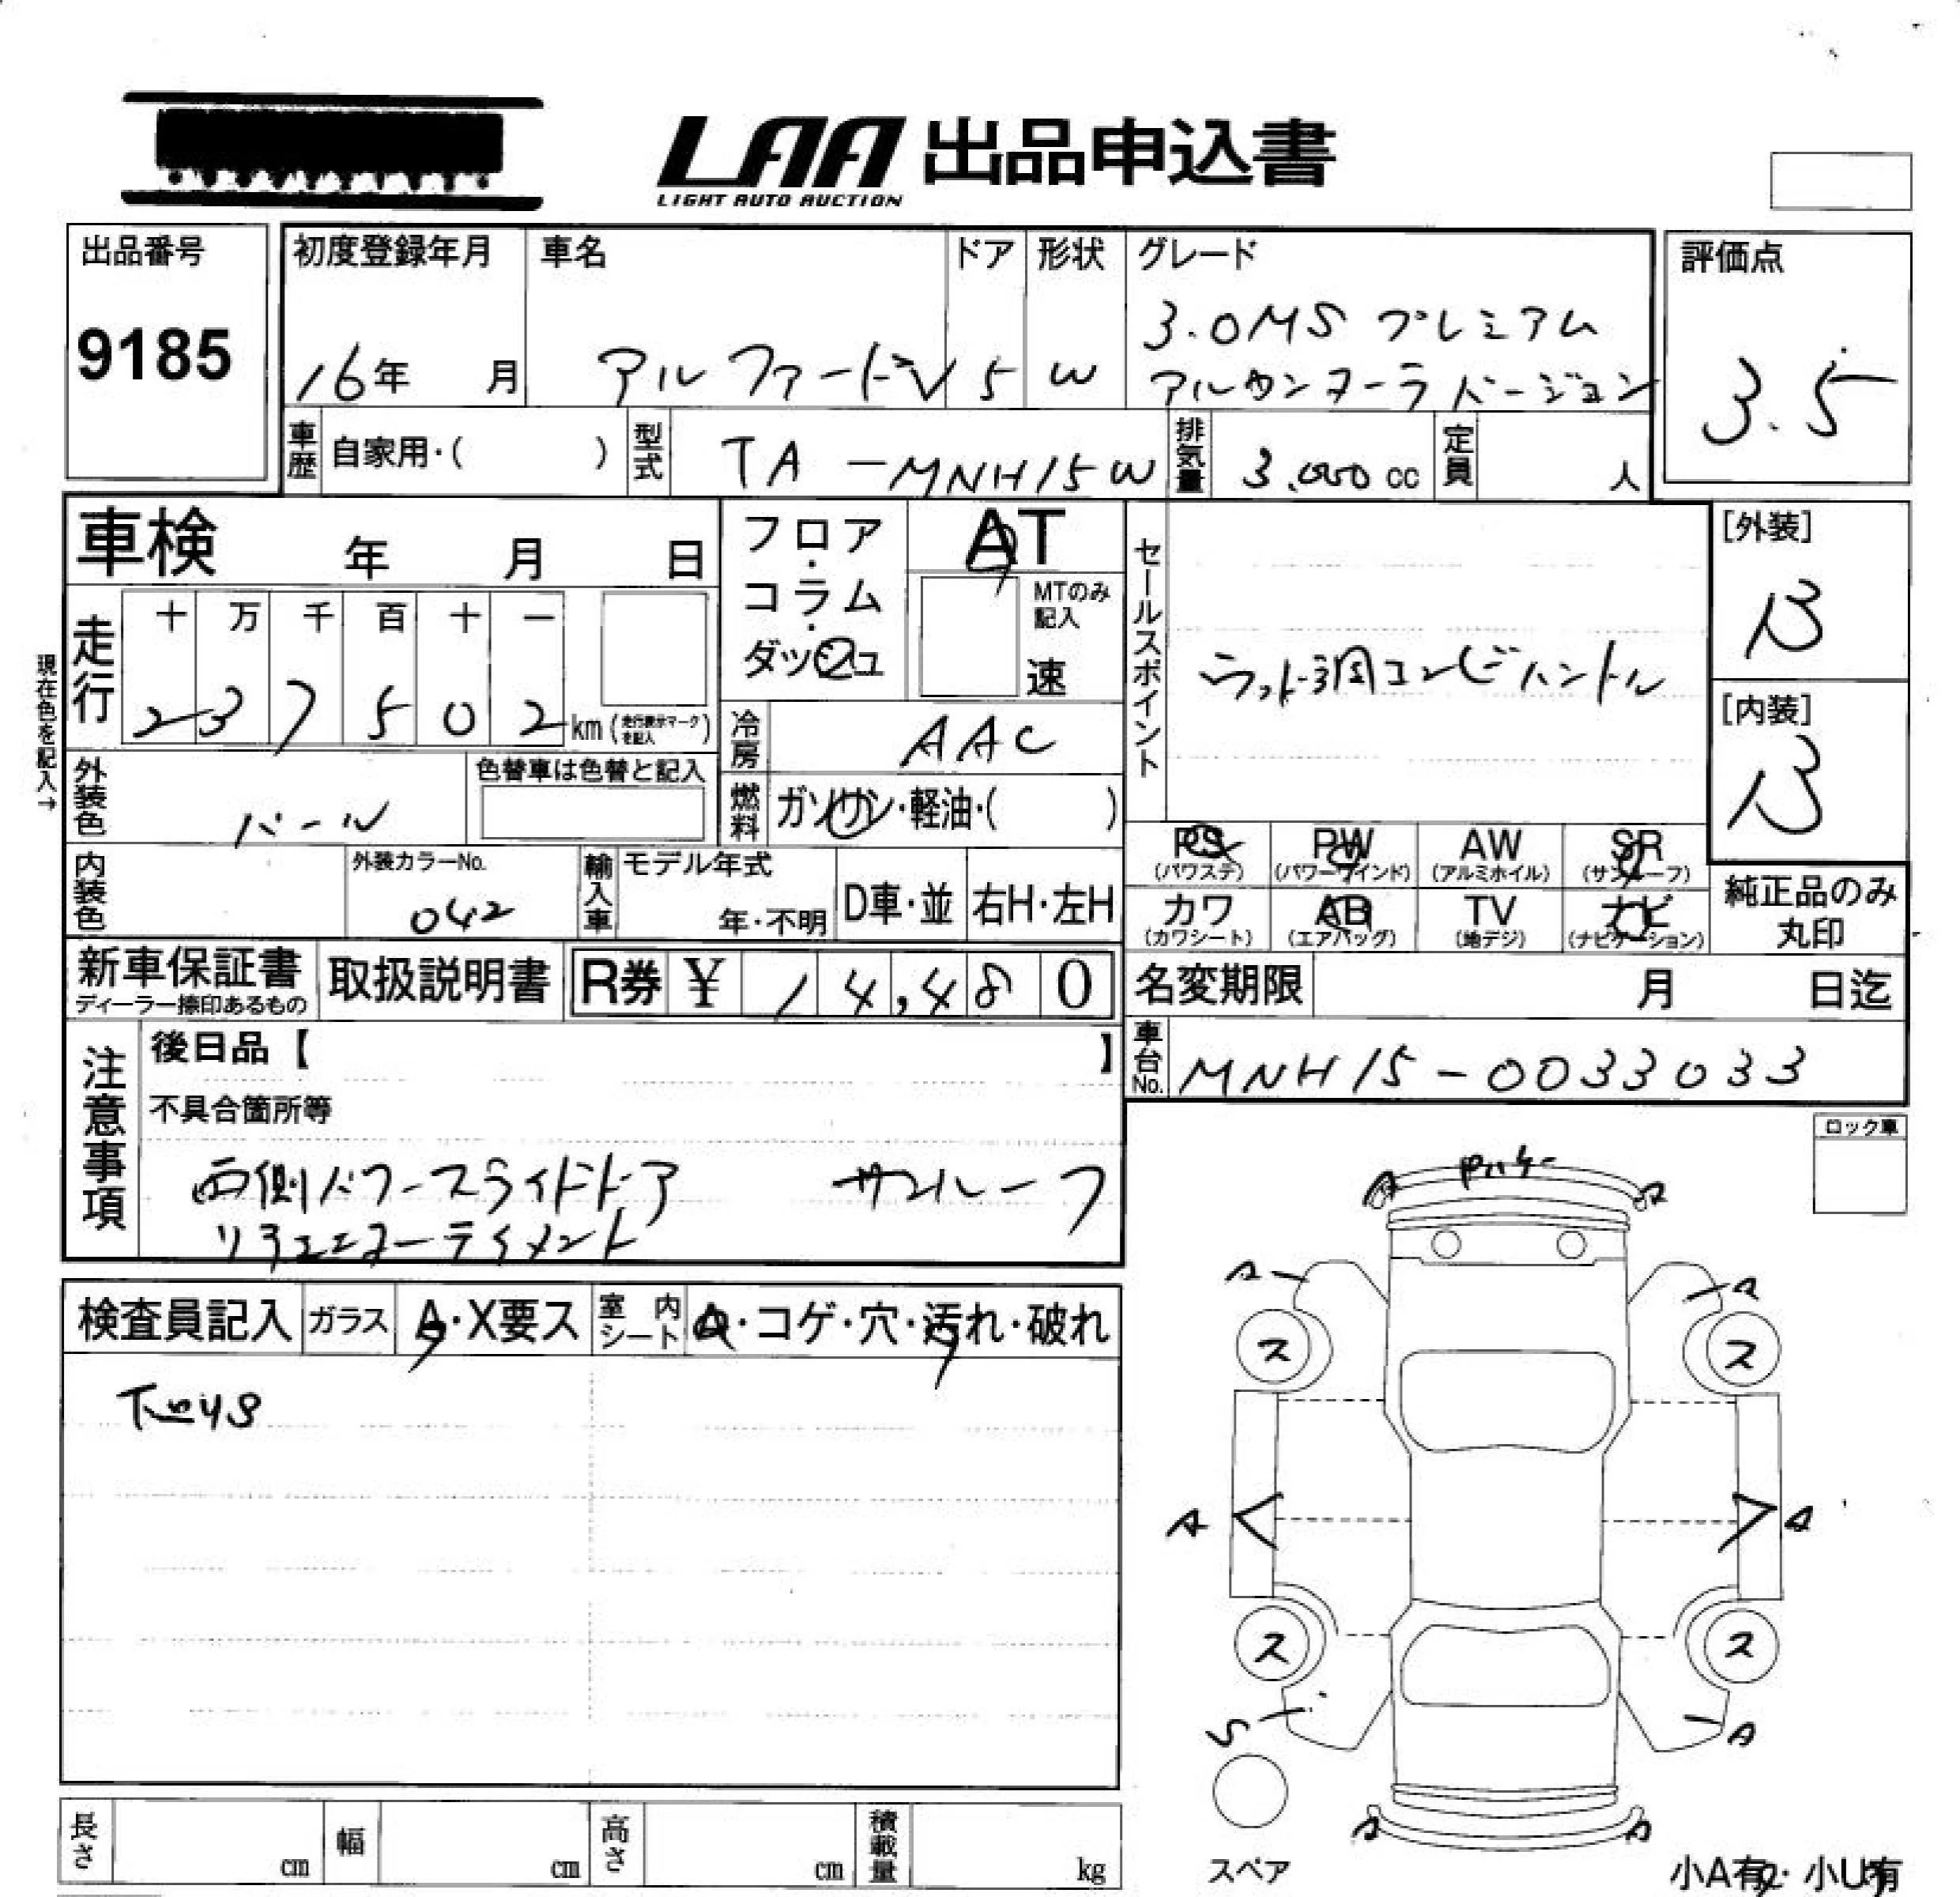 LAA 出品申込書
LIGHT AUTO AUCTION
出品番号
9185
初度登録年月
16年 月
車名
アルファードV
ドア
5
形状
W
グレード
3.0MS プレミアム
アルカンターラバージョン
評価点
3.5
車歴 自家用・( )
型式 TA-MNH15W
排気量 3.000 cc
定員 人
車検 年 月 日
フロア・コラム・ダッシュ
AT
MTのみ記入
速
セールスポイント
ウッド調コンビハンドル
[外装]
B
[内装]
B
現在色を記入→
走行
十 万 千 百 十 一
2 3 7 5 0 2 km (走行表示マークを記入)
冷房 AAC
外装色 パール
色替車は色替と記入
燃料 ガソリン・軽油・( )
PS (パワステ)
PW (パワーウインド)
AW (アルミホイル)
SR (サンルーフ)
カワ (カワシート)
AB (エアバッグ)
TV (地デジ)
ナビ (ナビゲーション)
純正品のみ丸印
内装色
外装カラーNo.
042
輸入車
モデル年式
年・不明
D車・並
右H・左H
新車保証書
ディーラー捺印あるもの
取扱説明書
R券 ¥ 14,480
名変期限 月 日迄
車台No. MNH15-0033033
注意事項
後日品【 】
不具合箇所等
両側パワースライドドア サンルーフ
リヤエンターテイメント
ロック車
検査員記入
ガラス A・X要ス
室内シート
・コゲ・穴・汚れ・破れ
下回りS
A A
A A
ス ス
A A
ス ス
S A
A A
スペア
小A有・小U有
長さ cm
幅 cm
高さ cm
積載量 kg